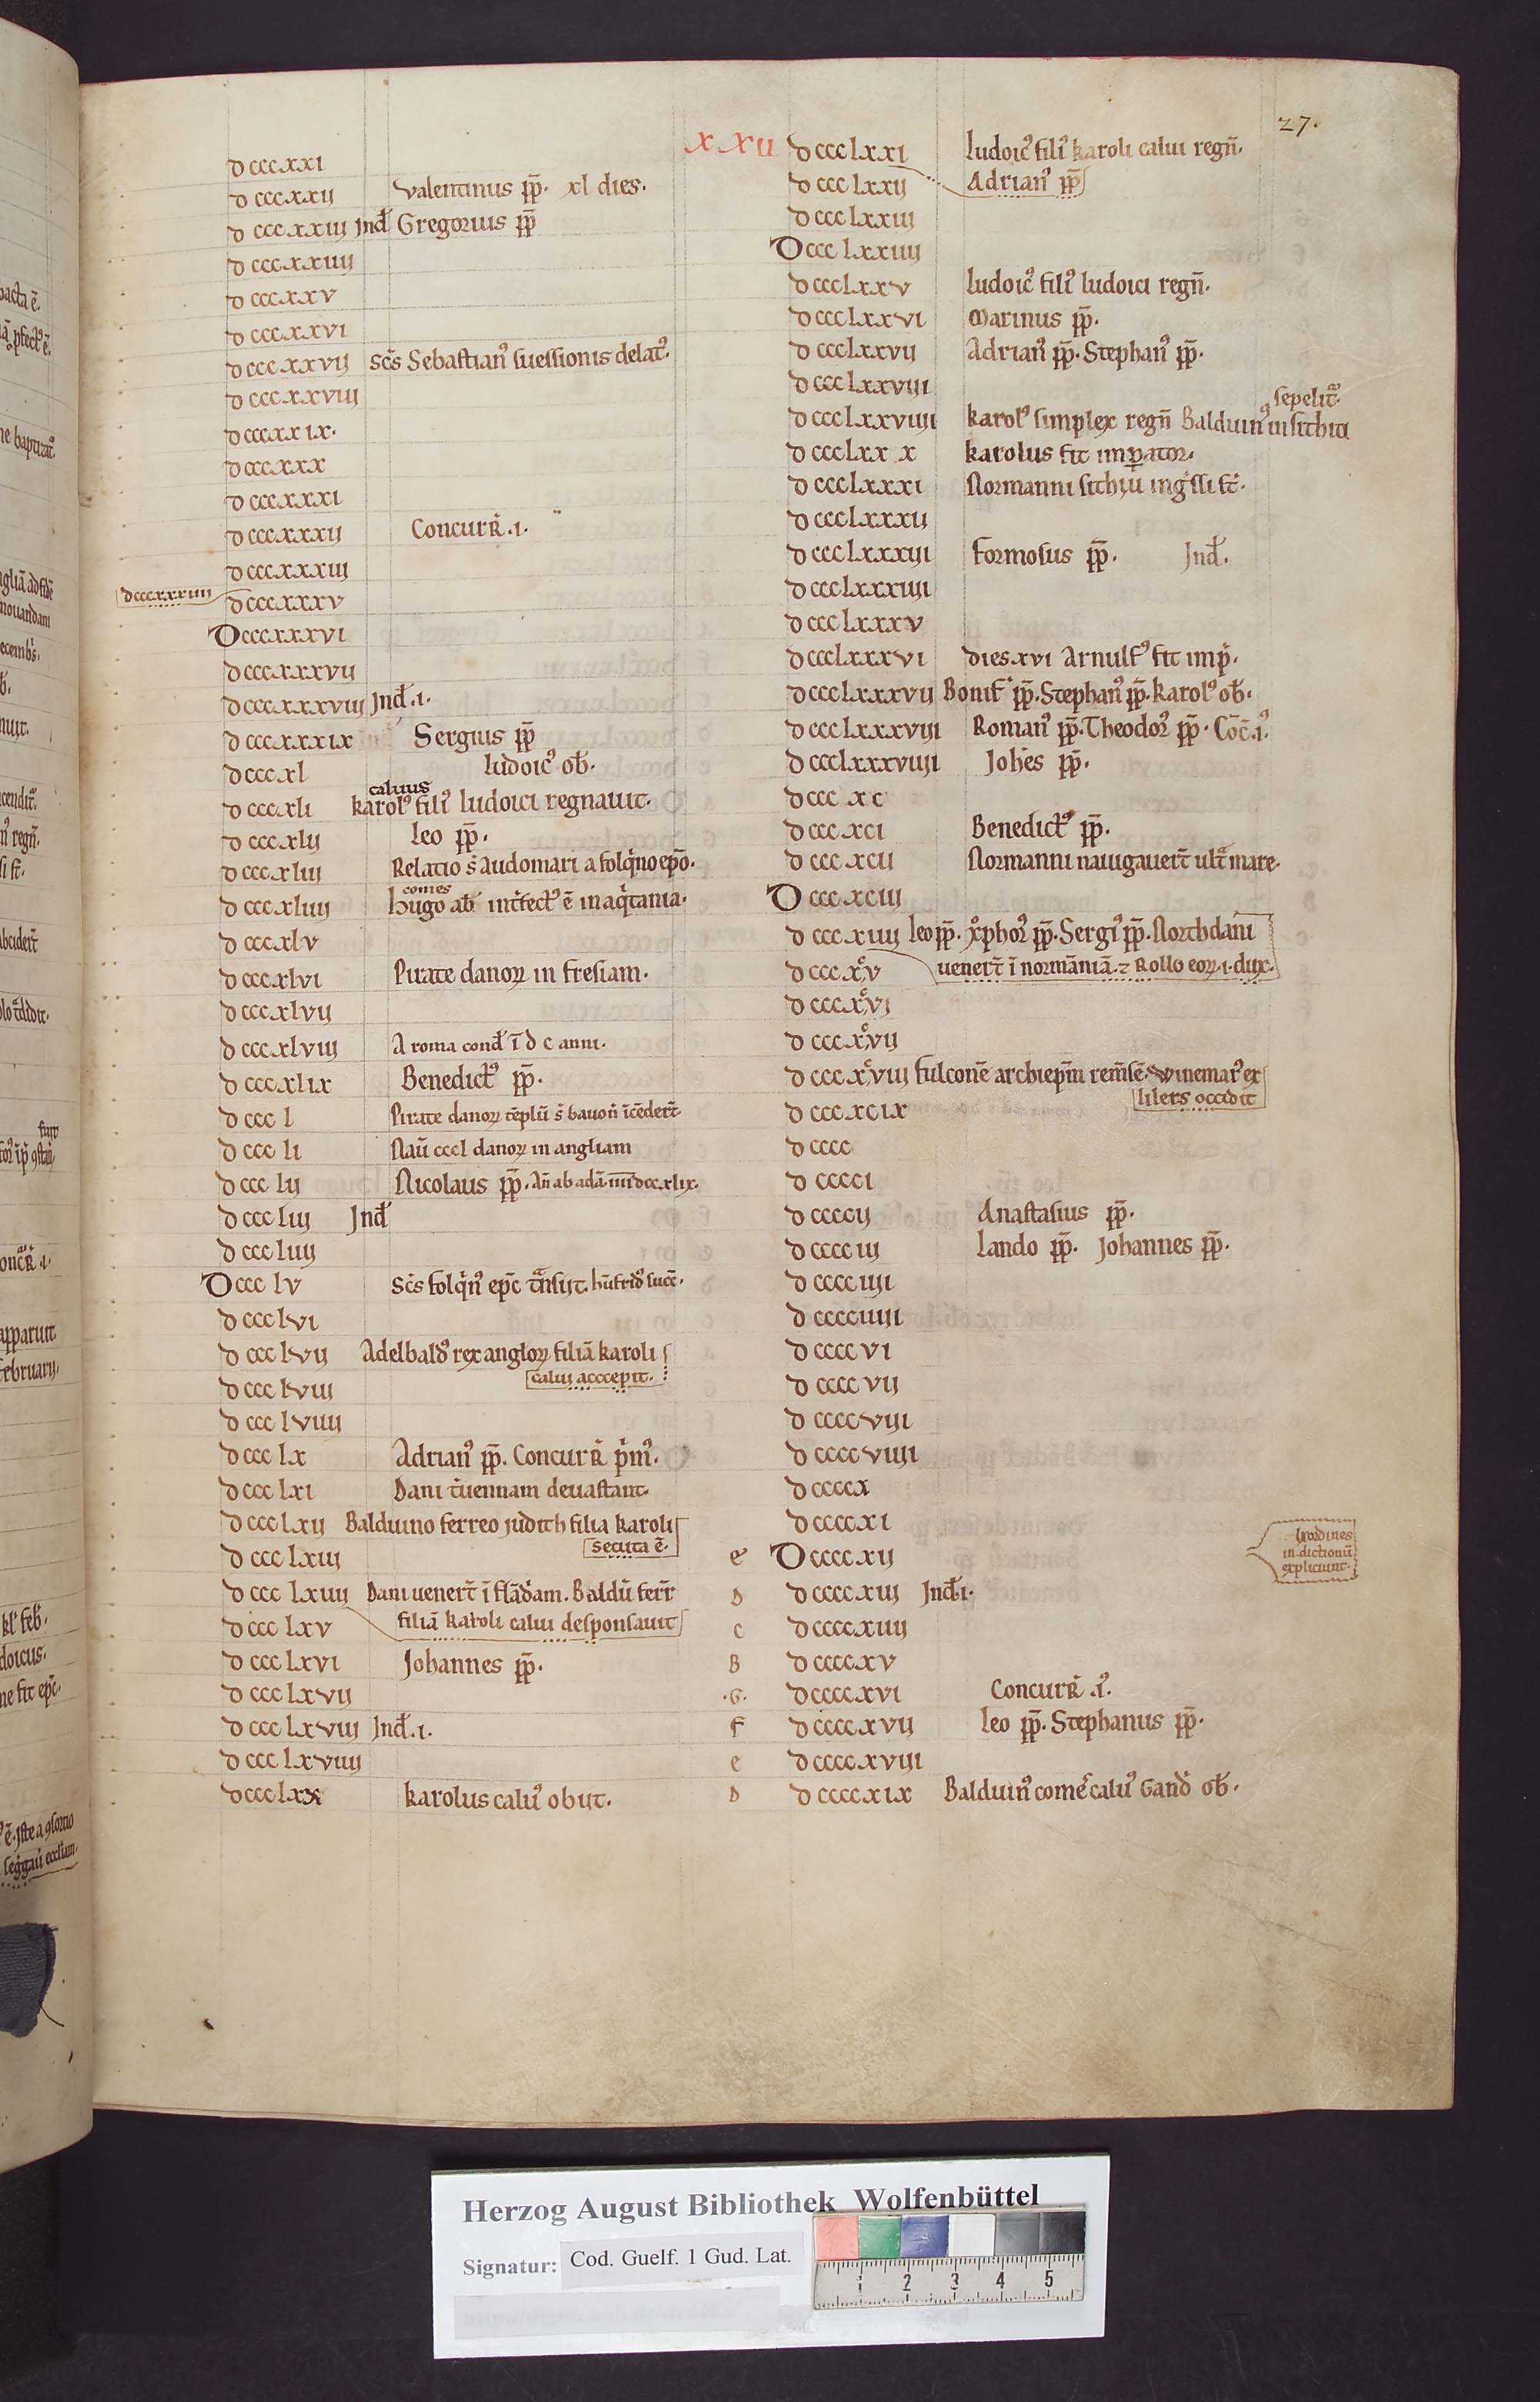 27.
xxii
dcccxxi
dcccxxij valentinus pp̄. xl dies.
dcccxxiij Ind̄ Gregorius pp̄
dcccxxiiij
dcccxxv
dcccxxvi
dcccxxvij sc̄s Sebastianꝰ suessionis delatꝰ.
dcccxxviij
dcccxxix.
dcccxxx
dcccxxxi
dcccxxxij Concurr̄ .i.
dcccxxxiij
dcccxxxiiij
dcccxxxv
Dcccxxxvi
dcccxxxvij
dcccxxxviij Ind̄ .i.
dcccxxxix Sergius pp̄
dcccxl ludoicꝰ ob̄.
calvus
dcccxli karolꝰ filiꝰ ludoici regnauit.
dcccxlij leo pp̄.
dcccxliij Relatio s̄ audomari a folq̄no ep̄o.
comes
dcccxliiij hugo ab̄ int̄fectꝰ ē in aq̄tania.
dcccxlv
dcccxlvi Pirate danoꝝ in fresiam.
dcccxlvij
dcccxlviij A roma cond̄ ī d c anni.
dcccxlix Benedictꝰ pp̄.
dccc l Pirate danoꝝ tēplū s̄ bauon̄ īcēdert̄.
dccc li Nau᷑ cccl danoꝝ in angliam
dccc lij Nicolaus pp̄. An̄ ab adā iiiidccxlix.
dccc liij Ind̄
dccc liiij
Dccc lv Sc̄s folq̄nꝰ ep̄c t̄nsijt. hūfridꝰ succ̄.
dccc lvi
dccc lvij Adelbaldꝰ rex angloꝝ filiā karoli
calui acccepit.
dccc lviij
dccc lviiij
dccc lx Adrianꝰ pp̄. Concurr̄ p̄mꝰ.
dccc lxi Dani t̄uennam deuastant.
dccc lxij Balduino ferreo judith filia karoli
secuta ē.
dccc lxiij
dccc lxiiij Dani uenert̄ ī flād̄am. Baldū ferr̄
filiā karoli calui desponsauit
dccc lxv
dccc lxvi Johannes pp̄.
dccc lxvij
dccc lxviij Ind̄ .i.
dccc lxviiij
dccc lxx karolus caluꝰ obijt.
dccc lxxi ludoicꝰ filiꝰ karoli calui regn̄.
dccc lxxij Adrianꝰ pp̄
dccc lxxiij
Dccc lxxiiij
dccc lxxv ludoicꝰ filiꝰ ludoici regn̄.
dccc lxxvi Marinus pp̄.
dccc lxxvij Adrianꝰ pp̄. Stephanꝰ pp̄.
dccc lxxviij
sepelit᷑.
dccc lxxviiij karolꝰ simplex regn̄ Balduinꝰ in sithiu
dccc lxxx karolus fit imꝑator.
dccc lxxxi Normanni sithiu inḡssi st̄.
dccc lxxxij
dccc lxxxiij formosus pp̄. Ind̄.
dccc lxxxiiij
dccc lxxxv
dccc lxxxvi dies xvi Arnulfꝰ fit imp̄.
dccc lxxxvij Bonif̄ pp̄. Stephanꝰ pp̄. karolꝰ ob̄.
dccc lxxxviij Romanꝰ pp̄. Theodorꝰ pp̄. Cōc̄ .iꝰ.
dccc lxxxviiij Joh̄es pp̄.
dccc xc
dccc xci Benedictꝰ pp̄.
dccc xcij Normanni nauigauert̄ ult̄ mare.
Dccc xciij
dccc xiiij leo pp̄. xp̄horꝰ pp̄. Sergiꝰ pp̄. Northdani
uenert̄ ī normānīā. ⁊ Rollo eoꝝ .i. dux.
dccc xcv
dccc xcvi
dccc xcvij
dccc xcviij fulconē archiep̄m rem̄sē winemarꝰ ex
lilers occidit
dccc xcix
dcccc
dcccci
dccccij Anastasius pp̄.
dcccciij lando pp̄. Johannes pp̄.
dcccciiij
dcccciiiij
dccccvi
dccccvij
dccccviij
dccccviiij
dccccx
dccccxi
e Dccccxij
hordines
in dictionū
expliciunt.
D dccccxiij Ind̄ .i.
c dccccxiiij
B dccccxv
.G. dccccxvi Concurr̄ .iꝰ.
f dccccxvij leo pp̄. Stephanus pp̄.
e dccccxviij
D dccccxix Balduinꝰ comes caluꝰ Gand̄ ob̄.
Herzog August Bibliothek Wolfenbüttel
Signatur: Cod. Guelf. 1 Gud. Lat.
1 2 3 4 5